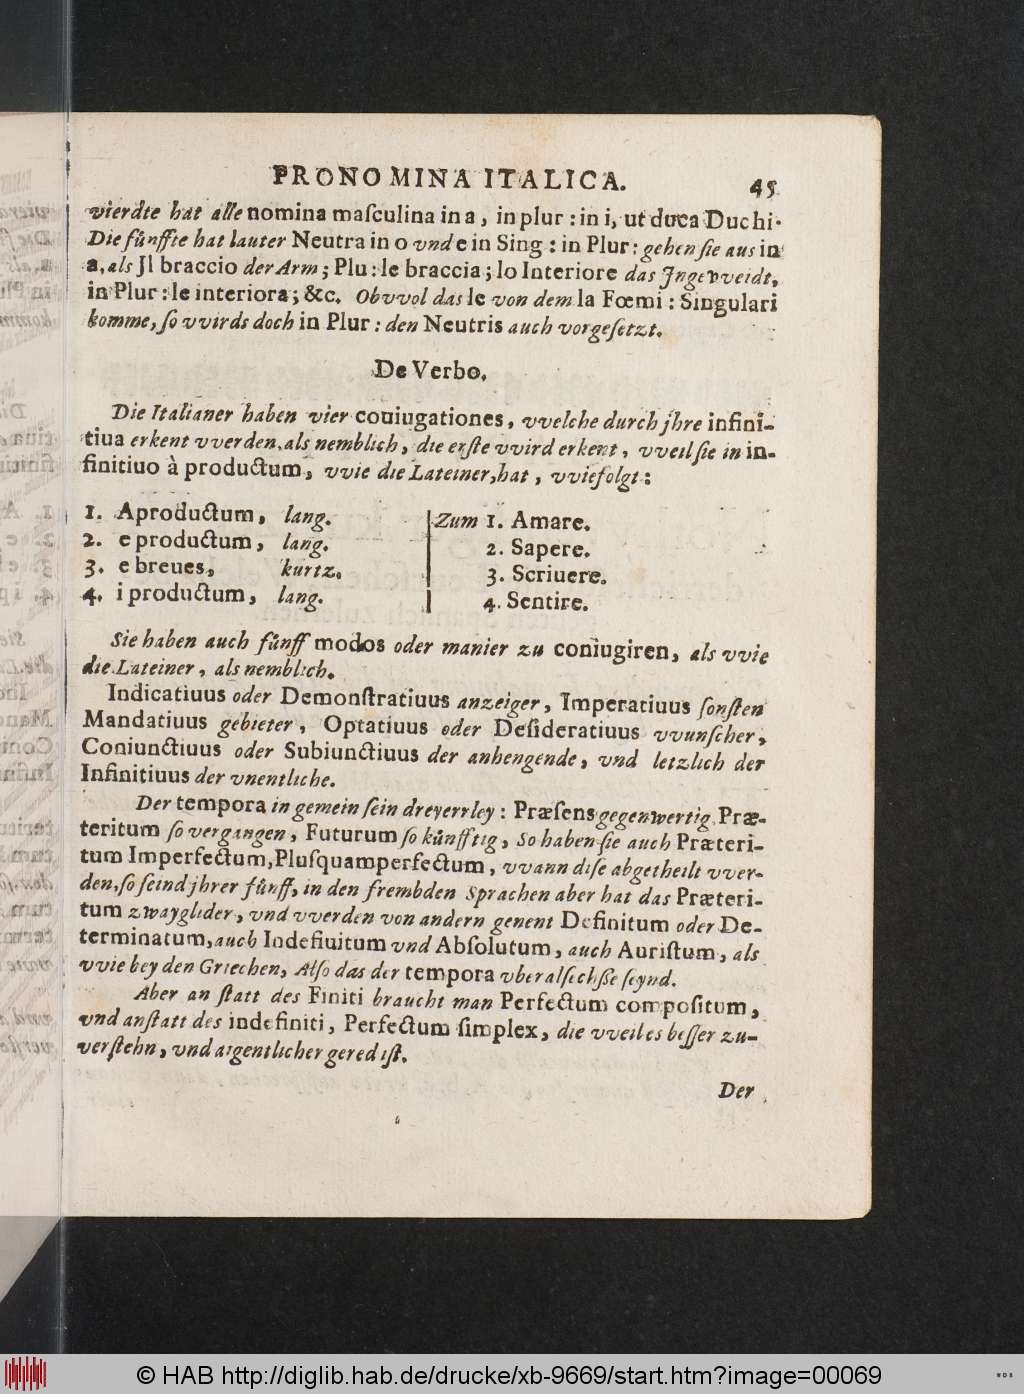 PRONOMINA ITALICA. 45
vierdte hat alle nomina maſculina in a, in plur : in i, ut duca Duchi.
Die fuͤnffte hat lauter Neutra in o vnd e in Sing : in Plur : gehen ſie aus in
a, als Jl braccio der Arm ; Plu : le braccia ; lo Interiore das Jngevveidt,
in Plur : le interiora ; &c. Obvvol das le von dem la Fœmi : Singulari
komme, ſo vvirds doch in Plur : den Neutris auch vorgeſetzt.
De Verbo.
Die Italianer haben vier couiugationes, vvelche durch jhre infini-
tiua erkent vverden, als nemblich, die erſte vvird erkent, vveil ſie in in-
finitiuo à productum, vvie die Lateiner, hat, vvie folgt :
1. A productum, lang. Zum 1. Amare.
2. e productum, lang. 2. Sapere.
3. e breues, kurtz. 3. Scriuere.
4. i productum, lang. 4. Sentire.
Sie haben auch fuͤnff modos oder manier zu coniugiren, als vvie
die Lateiner, als nemblich.
Indicatiuus oder Demonſtratiuus anzeiger, Imperatiuus ſonſten
Mandatiuus gebieter, Optatiuus oder Deſideratiuus vvunſcher,
Coniunctiuus oder Subiunctiuus der anhengende, vnd letzlich der
Infinitiuus der vnentliche.
Der tempora in gemein ſein dreyerrley : Præſens gegenwertig, Præ-
teritum ſo vergangen, Futurum ſo kuͤnfftig, So haben ſie auch Præteri-
tum Imperfectum, Pluſquamperfectum, vvann diſe abgetheilt vver-
den, ſo ſeind jhrer fuͤnff, in den frembden Sprachen aber hat das Præteri-
tum zwayglider, vnd vverden von andern genent Definitum oder De-
terminatum, auch Indefiuitum vnd Abſolutum, auch Auriſtum, als
vvie bey den Griechen, Alſo das der tempora vberal ſechſze ſeynd.
Aber an ſtatt des Finiti braucht man Perfectum compoſitum,
vnd anſtatt des indefiniti, Perfectum ſimplex, die vveil es beſſer zu-
verſtehn, vnd aigentlicher gered iſt.
Der
© HAB http://diglib.hab.de/drucke/xb-9669/start.htm?image=00069